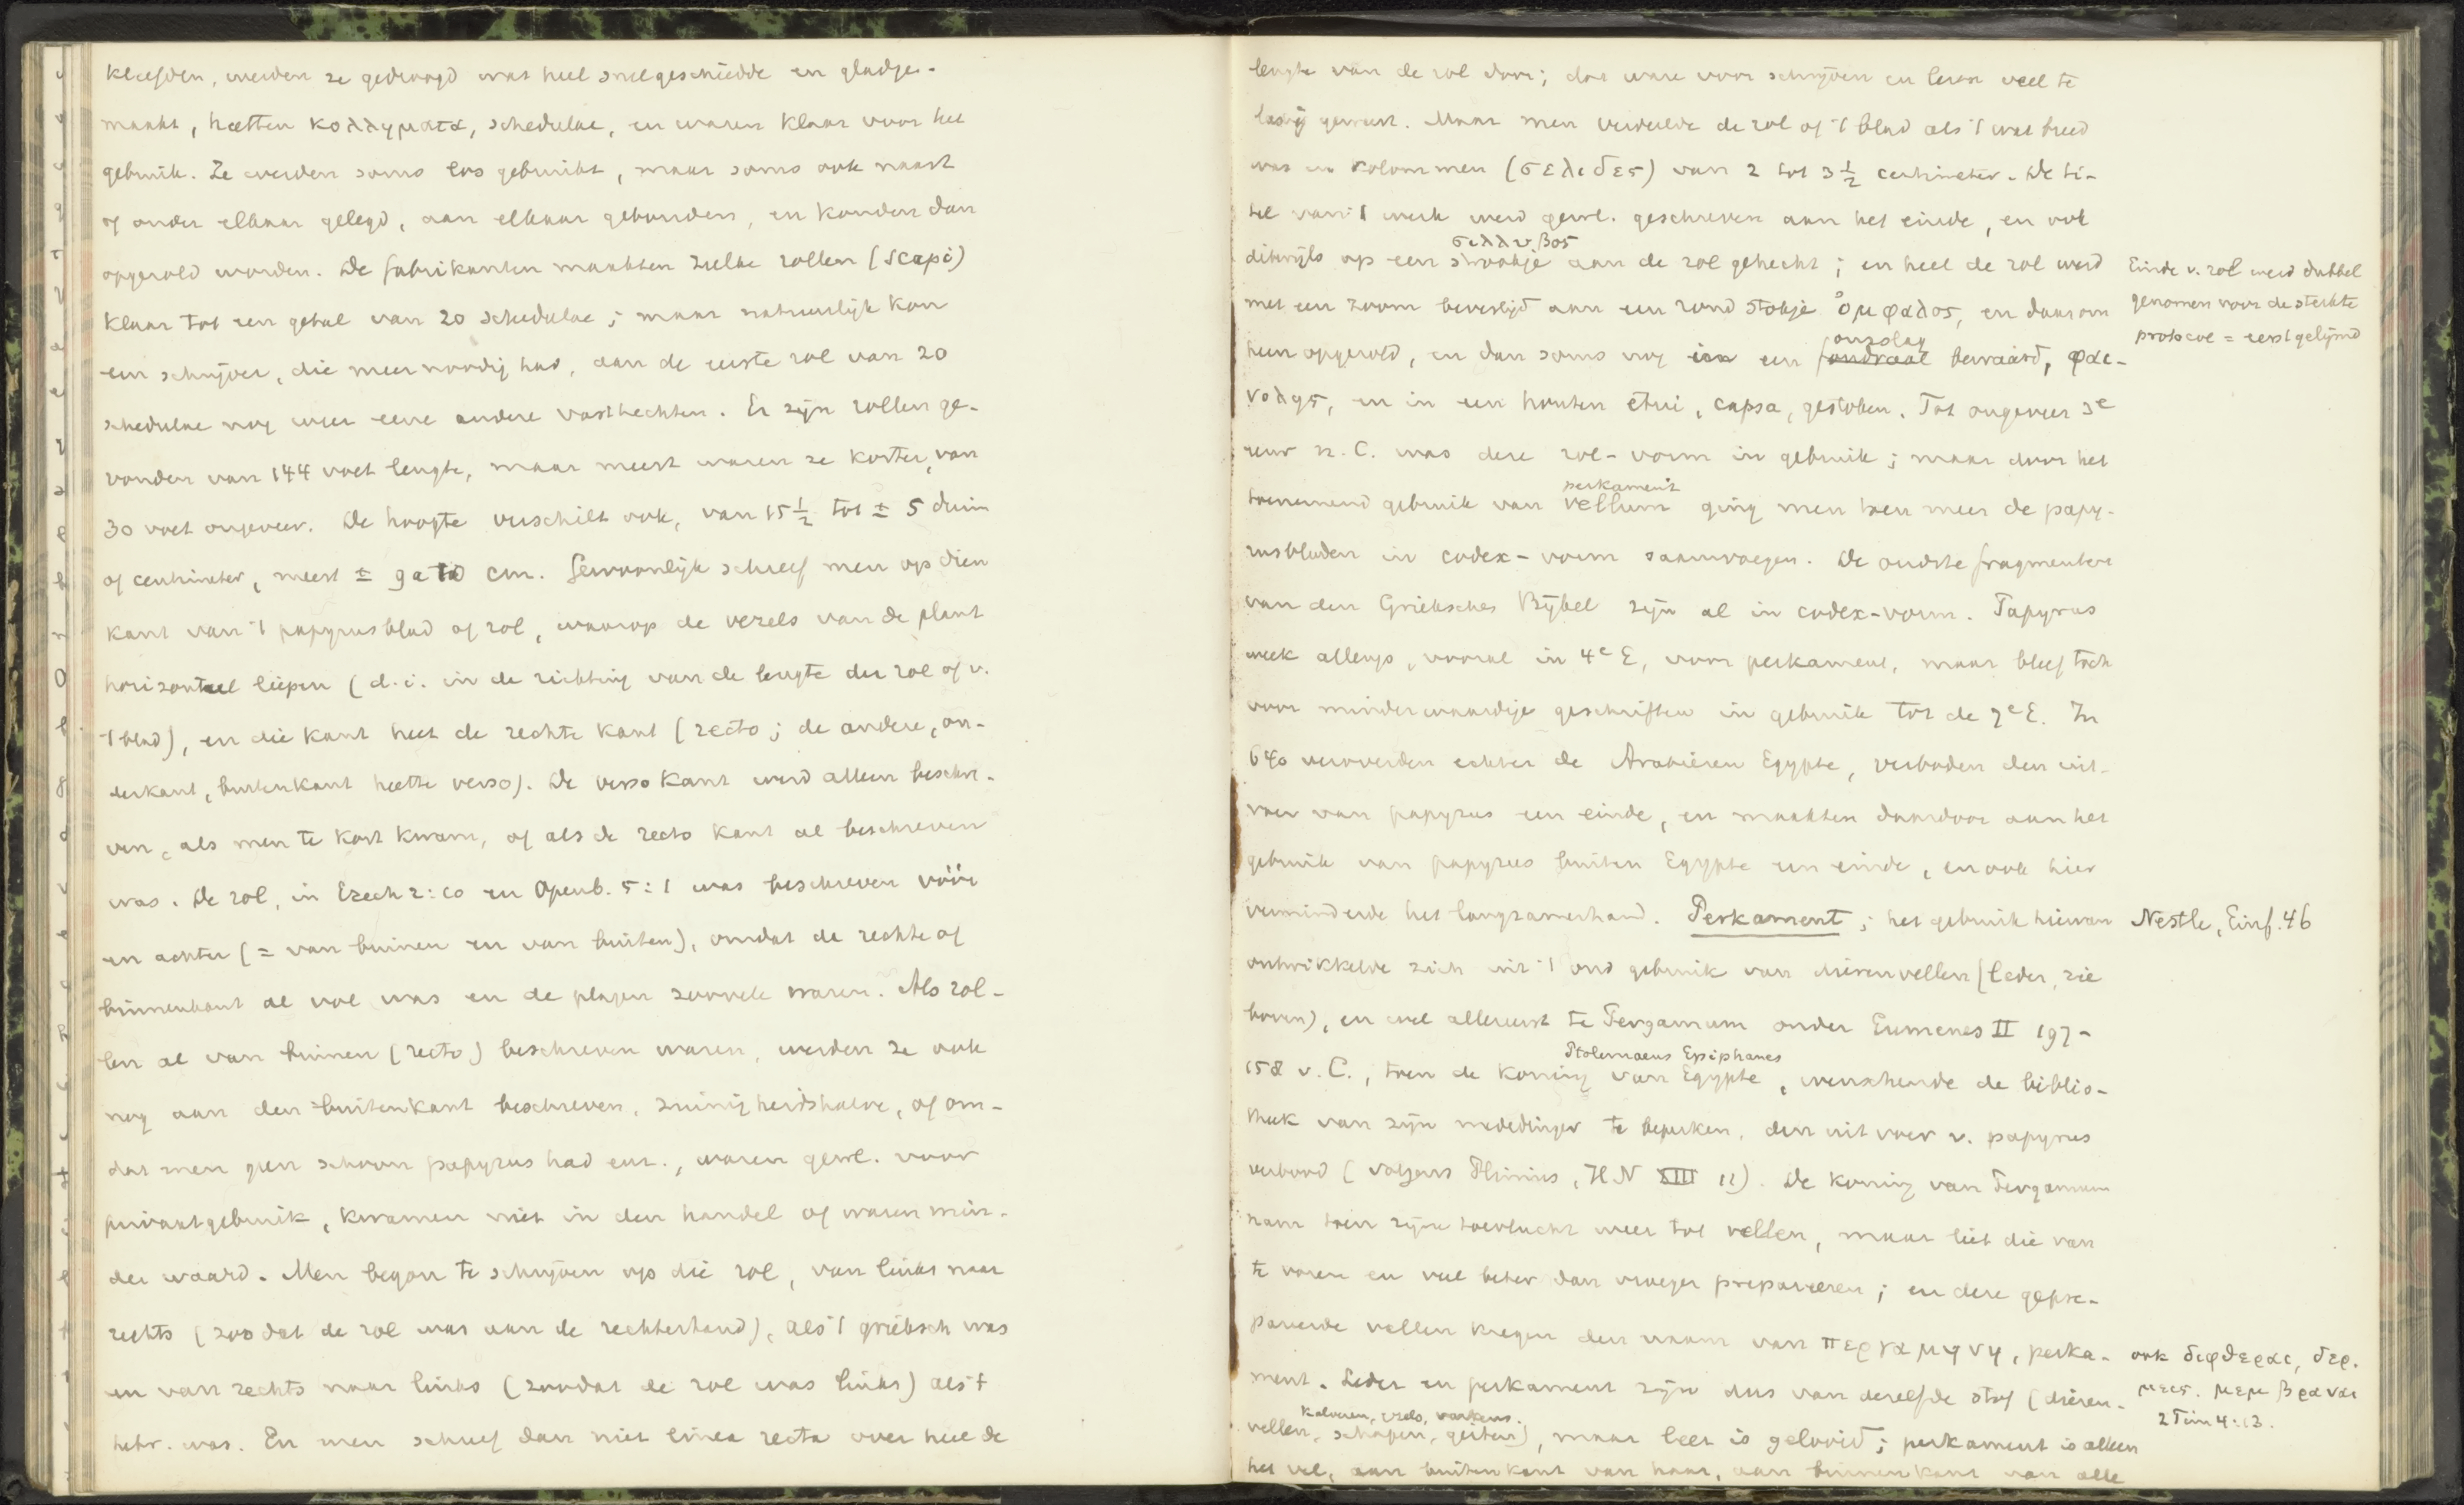 kleefden, werden ze gedroogd wat heel snel geschiedde en gladge-
maakt, heetten κολληματα, schedulae, en waren klaar voor het
gebruik. Ze werden soms los gebruikt, maar soms ook naast
of onder elkaar gelegd, aan elkaar gebonden, en konden dan
opgerold worden. De fabrikanten maakten zulke rollen (scapi)
klaar tot een getal van 20 schedulae; maar natuurlijk kon
een schrijver, die meer noodig had, aan de eerste rol van 20
schedulae nog weer eene andere vasthechten. Er zijn rollen ge-
vonden van 144 voet lengte, maar meest waren ze korter, van
30 voet ongeveer. De hoogte verschilt ook, van 15 1/2 tot ± 5 duim
of centimeter, meest ± 9 a 10 cm. Gewoonlijk schreef men op dien
kant van 't papyrusblad of rol, waarop de vezels van de plant
horizontaal liepen (d.i. in de richting van de lengte der rol of v.
't blad), en die kant heet de rechte kant (recto; de andere, on-
derkant, buitenkant heette verso). De verso kant werd alleen beschre-
ven, als men te kort kwam, of als de recto kant al beschreven
was. De rol, in Ezech 2:10 en Openb. 5:1 was beschreven vóór
en achter (= van binnen en van buiten), omdat de rechte of
binnenkant al vol was en de plagen zoovele waren. Als rol-
len al van binnen (recto) beschreven waren, werden ze ook
nog aan den buitenkant beschreven, zuinigheidshalve, of om-
dat men geen schoon papyrus had enz., waren gewl. voor
privaatgebruik, kwamen niet in den handel of waren min-
der waard. Men begon te schrijven op die rol, van links naar
rechts (zoodat de rol was aan de rechterhand), als 't grieksch was
en van rechts naar links (zoodat de rol was links) als 't
hebr. was. En men schreef dan niet linea recta over heel de
lengte van de rol door; dat ware voor schrijven en lezen veel te
lastig geweest. Maar men verdeelde de rol of 't blad als 't wat breed
was in kolommen (σελιδες) van 2 tot 3 1/2 centimeter. De ti-
tel van 't werk werd gewl. geschreven aan het einde, en ook
σιλλυβος
dikwijls op een strookje aan de rol gehecht; en heel de rol werd
met een zoom bevestigd aan een rond stokje ὀμφαλος, en daarom
omslag
heen opgerold, en dan soms nog in een foudraal bewaard, φαι-
νολης, en in een houten etui, capsa, gestoken. Tot ongeveer 3e
eeuw n. C. was deze rol-vorm in gebruik; maar door het
perkament
toenemend gebruik van vellum ging men toen meer de papy-
rusbladen in codex-vorm saamvoegen. De oudste fragmenten
van den Griekschen Bijbel zijn al in codex-vorm. Papyrus
week allengs, vooral in 4e E, voor perkament, maar bleef toch
voor minderwaardige geschriften in gebruik tot de 7e E. In
640 veroverden echter de Arabieren Egypte, verboden den uit-
voer van papyrus een einde, en maakten daardoor aan het
gebruik van papyrus buiten Egypte een einde, en ook hier
verminderde het langzamerhand. Perkament; het gebruik hiervan
ontwikkelde zich uit 't oud gebruik van dierenvellen (leder, zie
boven), en wel allereerst te Pergamum onder Eumenes II 197-
Ptolemaeus Epiphanes
158 v. C., toen de koning van Egypte, wenschende de biblio-
theek van zijn mededinger te beperken, den uitvoer v. papyrus
verbood (volgens Plinius, HN XIII 11). De koning van Pergamum
nam toen zijne toevlucht weer tot vellen, maar liet die van
te voren en veel beter dan vroeger prepareeren; en deze gepre-
pareerde vellen kregen den naam van περγαμηνη, perka-
ment. Leder en perkament zijn dus van dezelfde stof (dieren-
kalveren, ezels, varkens.
vellen, schapen, geiten), maar leer is gelooid; perkament is alleen
het vel, aan buitenkant van haar, aan binnenkant van alle
Einde v. rol werd dubbel
genomen voor de sterkte
protocol = eerst gelijmd
Nestle, Einf. 46
ook διφθεραι, δερ.
μεις. μεμβραναι
2 Tim 4:13.